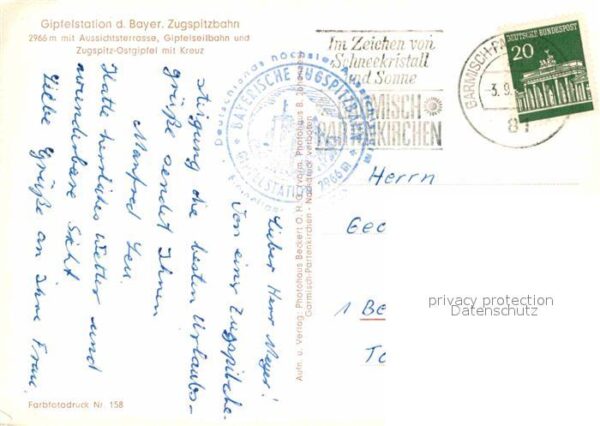 Gipfelstation d. Bayer. Zugspitzbahn
2966 m mit Aussichtsterrasse, Gipfelseilbahn und
Zugspitz-Ostgipfel mit Kreuz
Im Zeichen von
Schneekristall
und Sonne
GARMISCH
PARTENKIRCHEN
GARMISCH-PA
3.9.
81
20
DEUTSCHE BUNDESPOST
Deutschlands höchster Aussichts
BAYERISCHE ZUGSPITZBAHN
GIPFELSTATION 2966 m
Lieber Herr Meyer!
Von einer Zugspitzbe-
steigung die besten Urlaubs-
grüße sendet Ihnen
Manfred
Hatte herrliches Wetter und
wunderbare Sicht
Liebe Grüße an Ihre Frau
Aufn. u. Verlag: Photohaus Beckert
Garmisch-Partenkirchen - Nachdruck verboten
Herrn
Geo
1 Be
To
privacy protection
Datenschutz
Farbfotodruck Nr. 158